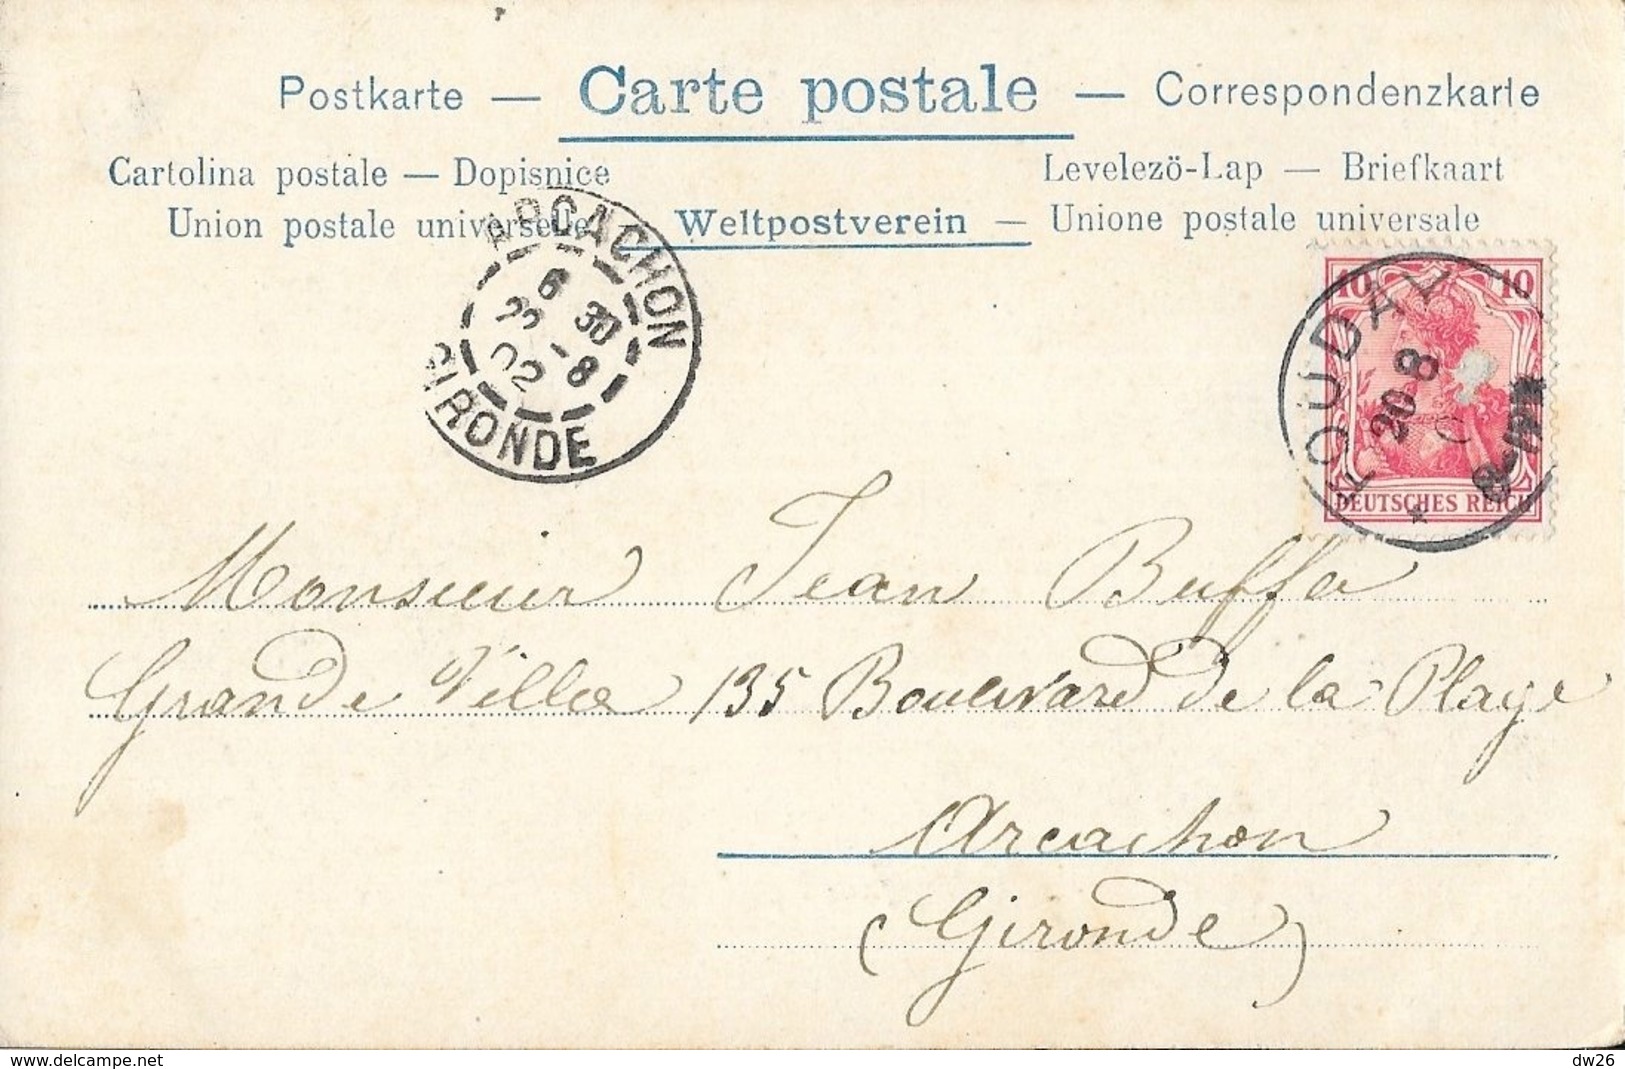 Postkarte — Carte postale — Correspondenzkarte
Cartolina postale — Dopisnice
Levelezö-Lap — Briefkaart
Union postale universelle — Weltpostverein — Unione postale universale
ARCACHON
6 30
-8
02
GIRONDE
10 10
20 8
DEUTSCHES REICH
Monsieur Jean Buffa
Grande Villa 135 Boulevard de la Plage
Arcachon
(Gironde)
www.delcampe.net
dw26